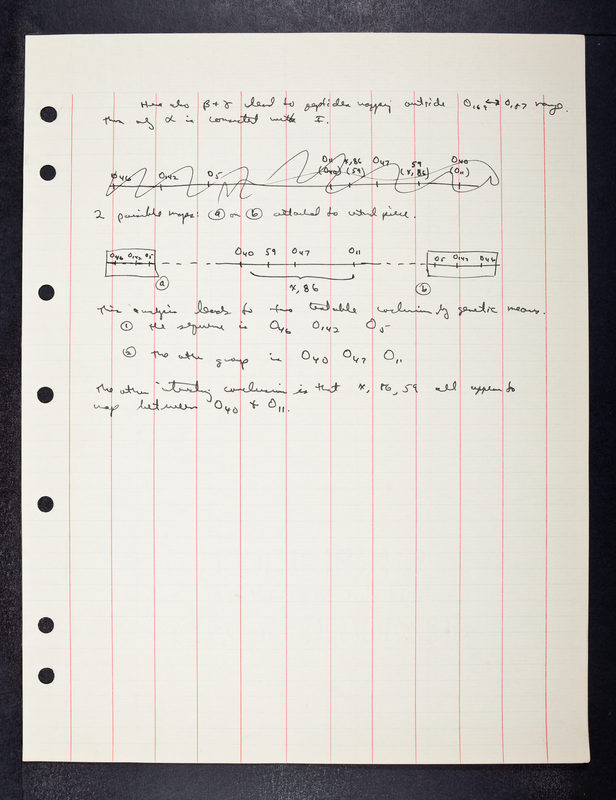 Here also β + γ lead to peptides mapping outside O169 ↔ O187 range.
Thus only α is consistent with I.
O11 x,86 O47 59 O40
O46 O142 O5 (O40) (59) (x,86) (O11)
2 possible maps: (a) or (b) attached to central piece.
O46 O142 O5 O40 59 O47 O11 O5 O142 O46
(a) x, 86 (b)
This analysis leads to two testable conclusions by genetic means.
① The sequence is O46 O142 O5
② The other group is O40 O47 O11
The other interesting conclusion is that x, 86, 59 all appear to
map between O40 + O11.